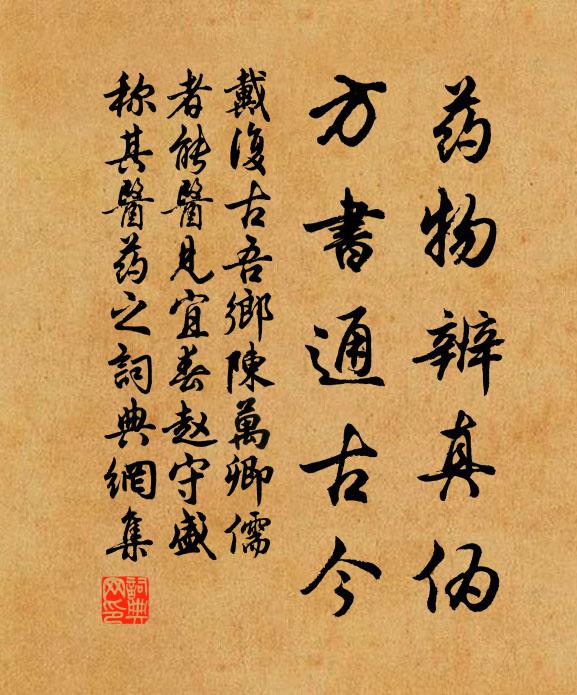 药物辨真伪
方書通古今
戴復古吾鄉陳萬卿儒
者能醫見宜春赵守盛
称其醫药之詞典網集
詞典
网印